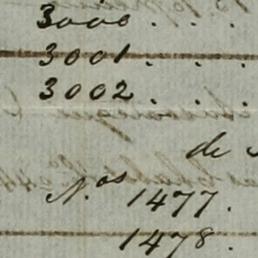 3000 . . .
3001 . . .
3002 . . .
de
N.os 1477 .
1478 .